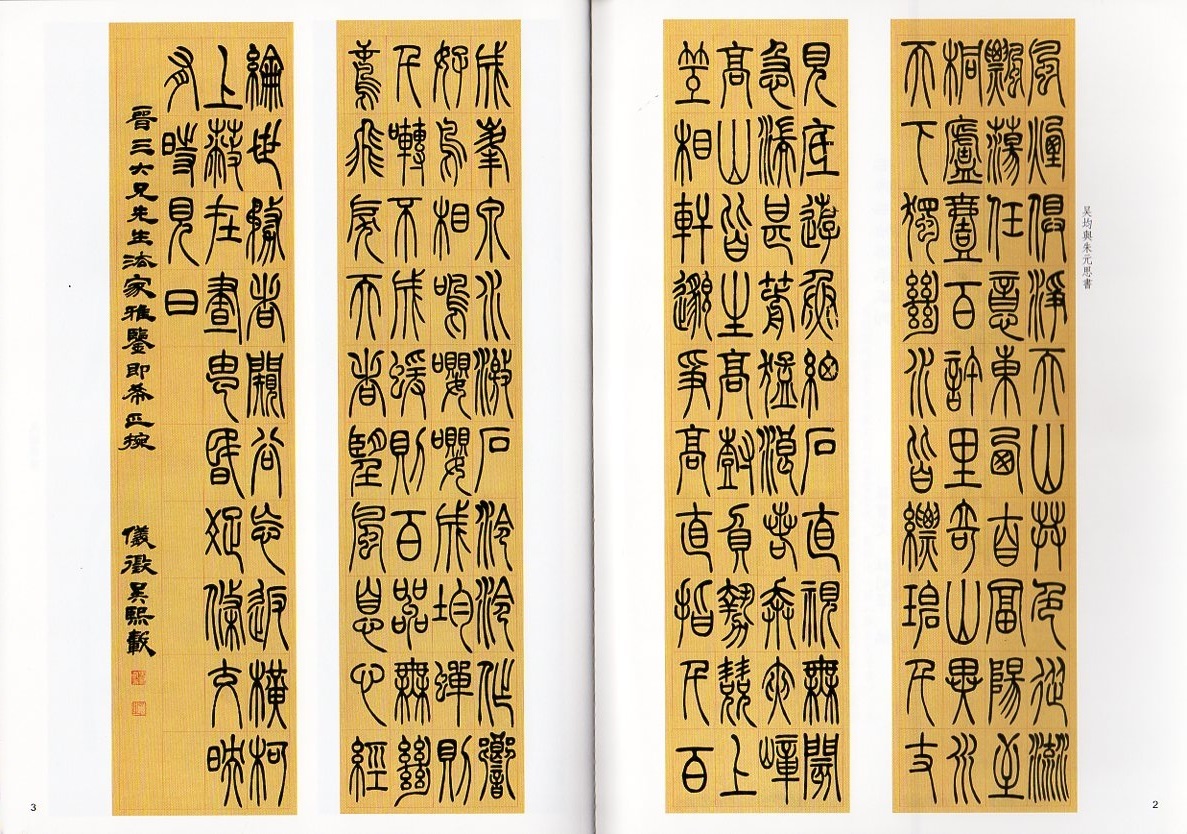 吴均與朱元思書
風煙俱淨天山共色從流
飄蕩任意東西自富陽至
桐廬壹百許里奇山異水
天下獨絕水皆縹碧千丈
2
見底遊魚細石直視無閡
急湍甚箭猛浪若奔夾嶂
高山皆生高樹負勢競上
互相軒邈爭高直指千百
成峯泉水激石泠泠作響
好鳥相鳴嚶嚶成均蟬則
千囀不成蝯則百嘂無絕
鳶飛戾天者望風息心經
綸世務者闚谷忘返橫柯
上蔽在晝昏疏條交映
有時見日
晉三六兄先生法家雅鑒即希正捥
儀徵吳熙載
3